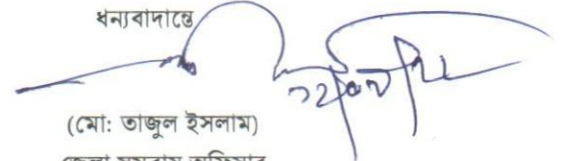 ধন্যবাদান্তে
(মো: তাজুল ইসলাম)
জেলা সমবায় অফিসার